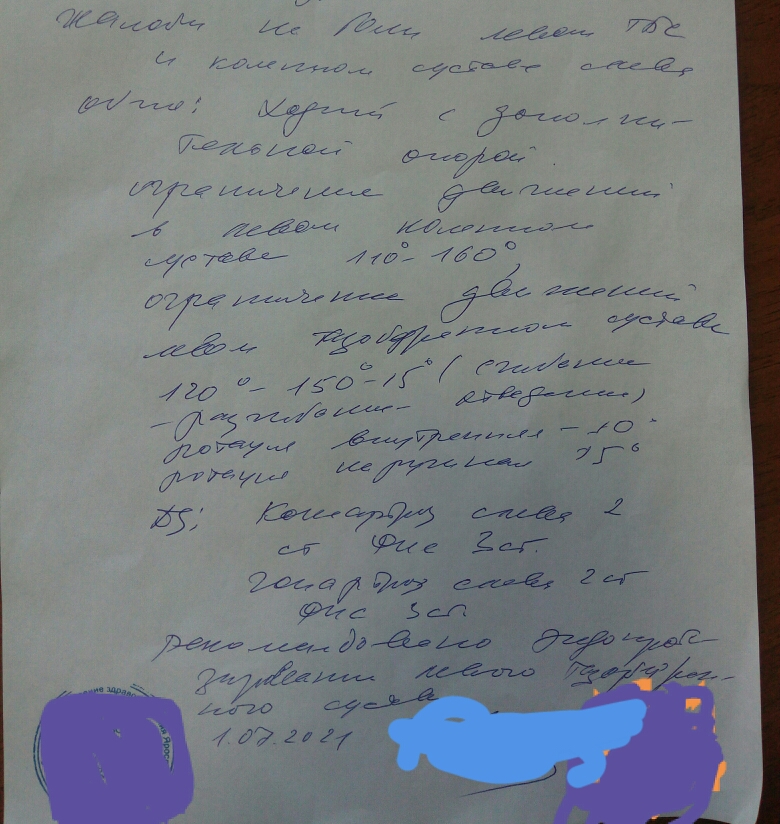 Жалобы на боли левом ТБС
и коленном суставе слева
об-но: Ходит с дополни-
тельной опорой
ограничение движений
в левом коленном
суставе 110°- 160°,
ограничение движений
левом тазобедренном суставе
120°- 150°-15° (сгибание
-разгибание- отведение)
ротация внутренняя - 10°
ротация наружная 15°
DS: Коксартроз слева 2
ст ФНС 3ст.
гонартроз слева 2 ст
ФНС 3ст.
рекомендовано эндопроте-
зирование левого тазобедрен-
ного сустава
1.07.2021